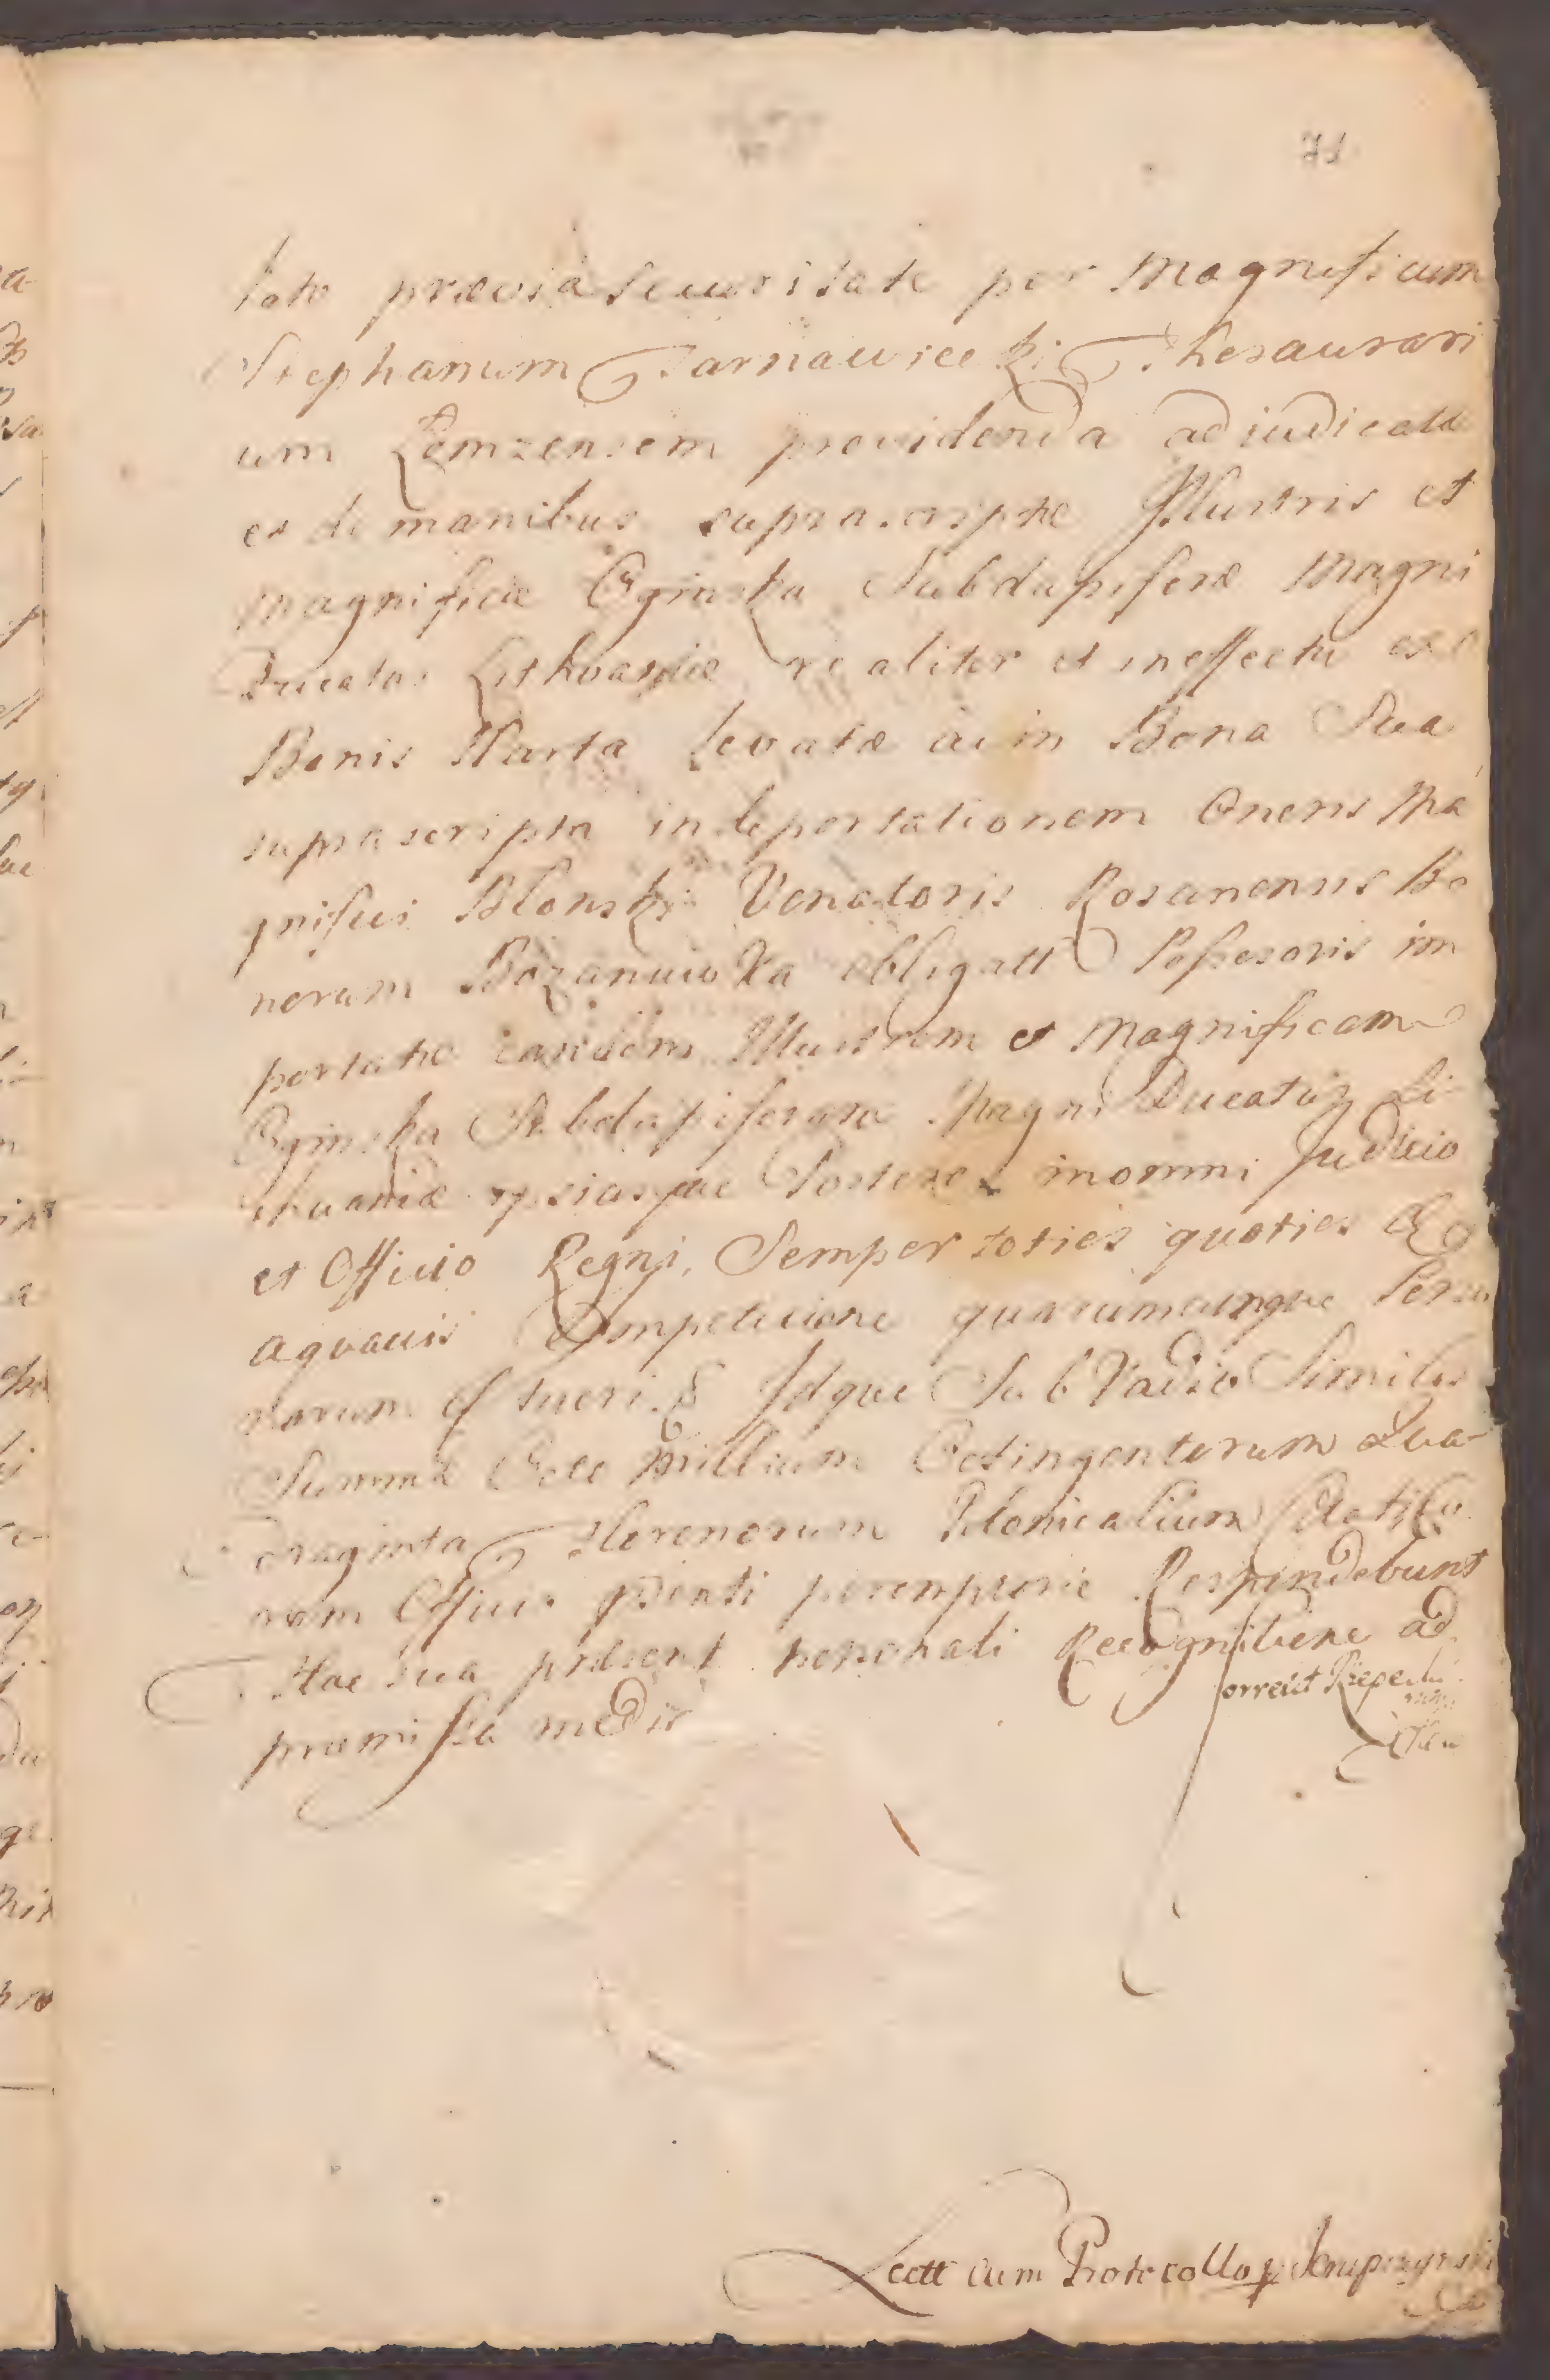 71
lato prævia securitate per Magnificum
Stephanum Tarnawiecki Thesaurari
um Łomzensem providenda adiudicatæ
et de manibus suprascriptæ Illustris et
Magnificæ Oginska Subdapiferæ Magni
Ducatus Lithvaniæ realiter et in effectu ex
Bonis Harta levatæ ac in Bona Sua
suprascripta in deportationem Oneris Ma
gnifici Blonski Venatoris Rosanensis Bo
norum obligatt Possesoris im
portatæ eandem Illustrem et Magnificam
Oginska Subdapiferam Magni Ducatus Li
thvaniæ ipsiusque in omni Judicio
et Officio Regni, Semper toties quoties
aquavis Competitione quarumcunque Perso
narum tueri. Idque Sub Vadio Similis
Summæ Octo Millium Octingentorum Qua
draginta Florenorum Polonicalium
rum Officio pdenti peremptorie Respondebunt
Hac sua præsent personali Recognitione ad
præmissa media
Correxit
Lectt cum Protocollo p Skrupczynski